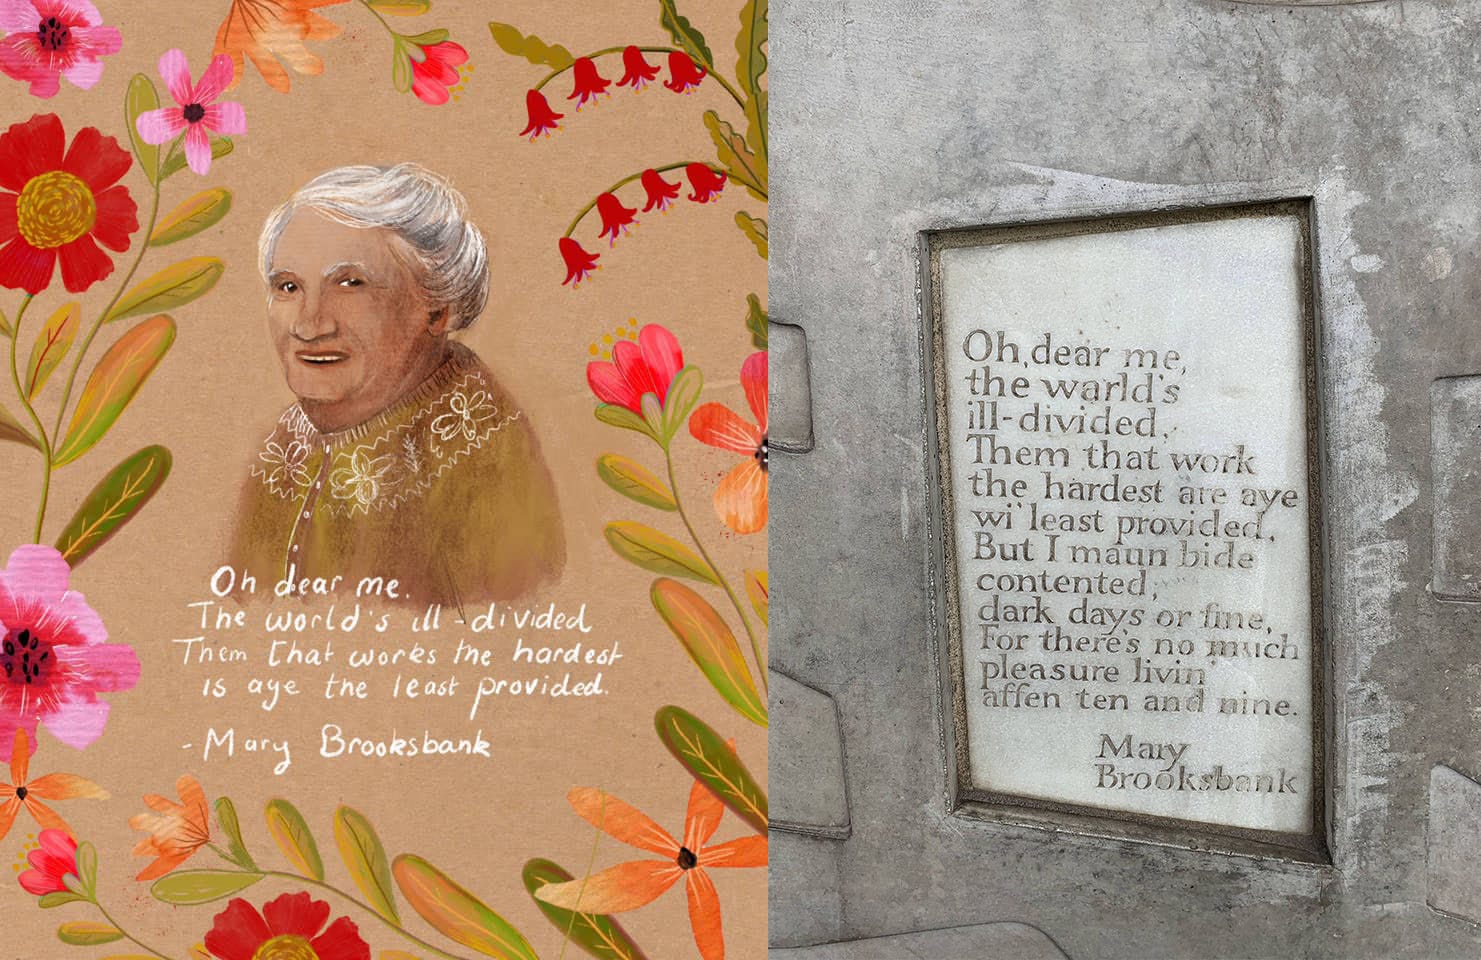 Oh dear me.
The world's ill-divided
Them that works the hardest
is aye the least provided.
- Mary Brooksbank
Oh, dear me,
the warld's
ill-divided,
Them that work
the hardest are aye
wi' least provided,
But I maun bide
contented,
dark days or fine,
For there's no much
pleasure livin'
affen ten and nine.
Mary
Brooksbank